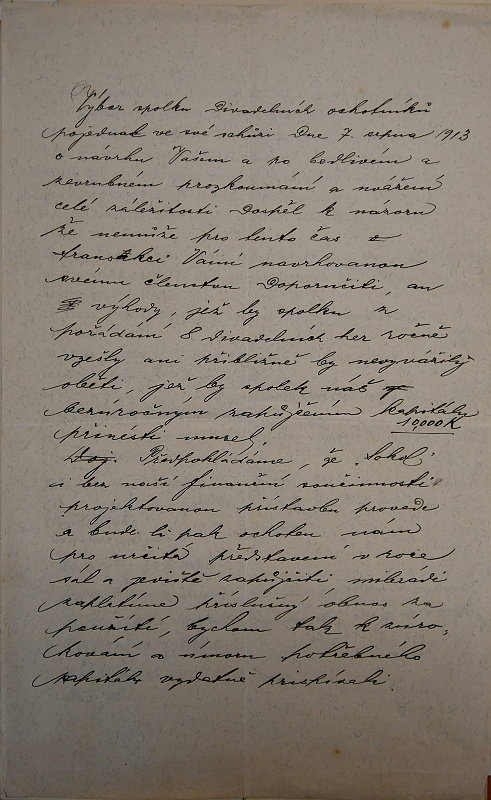 Výbor spolku divadelních ochotníků
pojednal ve své schůzi dne 7 srpna 1913
o návrhu Vašem a po bedlivém a
zevrubném prozkoumání a uvážení
celé záležitosti dospěl k názoru
že nemůže pro tento čas
transakci Vámi navrhovanou
svému členstvu doporučiti, an
výhody, jež by spolku z
pořádání 8 divadelních her ročně
vzešly ani přibližně by nevyvážily
oběti, jež by spolek náš
bezúročným zapůjčením kapitálu
10,000 K
přinésti musel.
Předpokládáme, že "Sokol"
i bez naší finanční součinnosti
projektovanou přístavbu provede
a bude-li pak ochoten nám
pro určitá představení v roce
sál a jeviště zapůjčiti milerádi
zaplatíme příslušný obnos za
použití, bychom tak k zúro-
kování a úmoru potřebného
kapitálu vydatně přispívali.